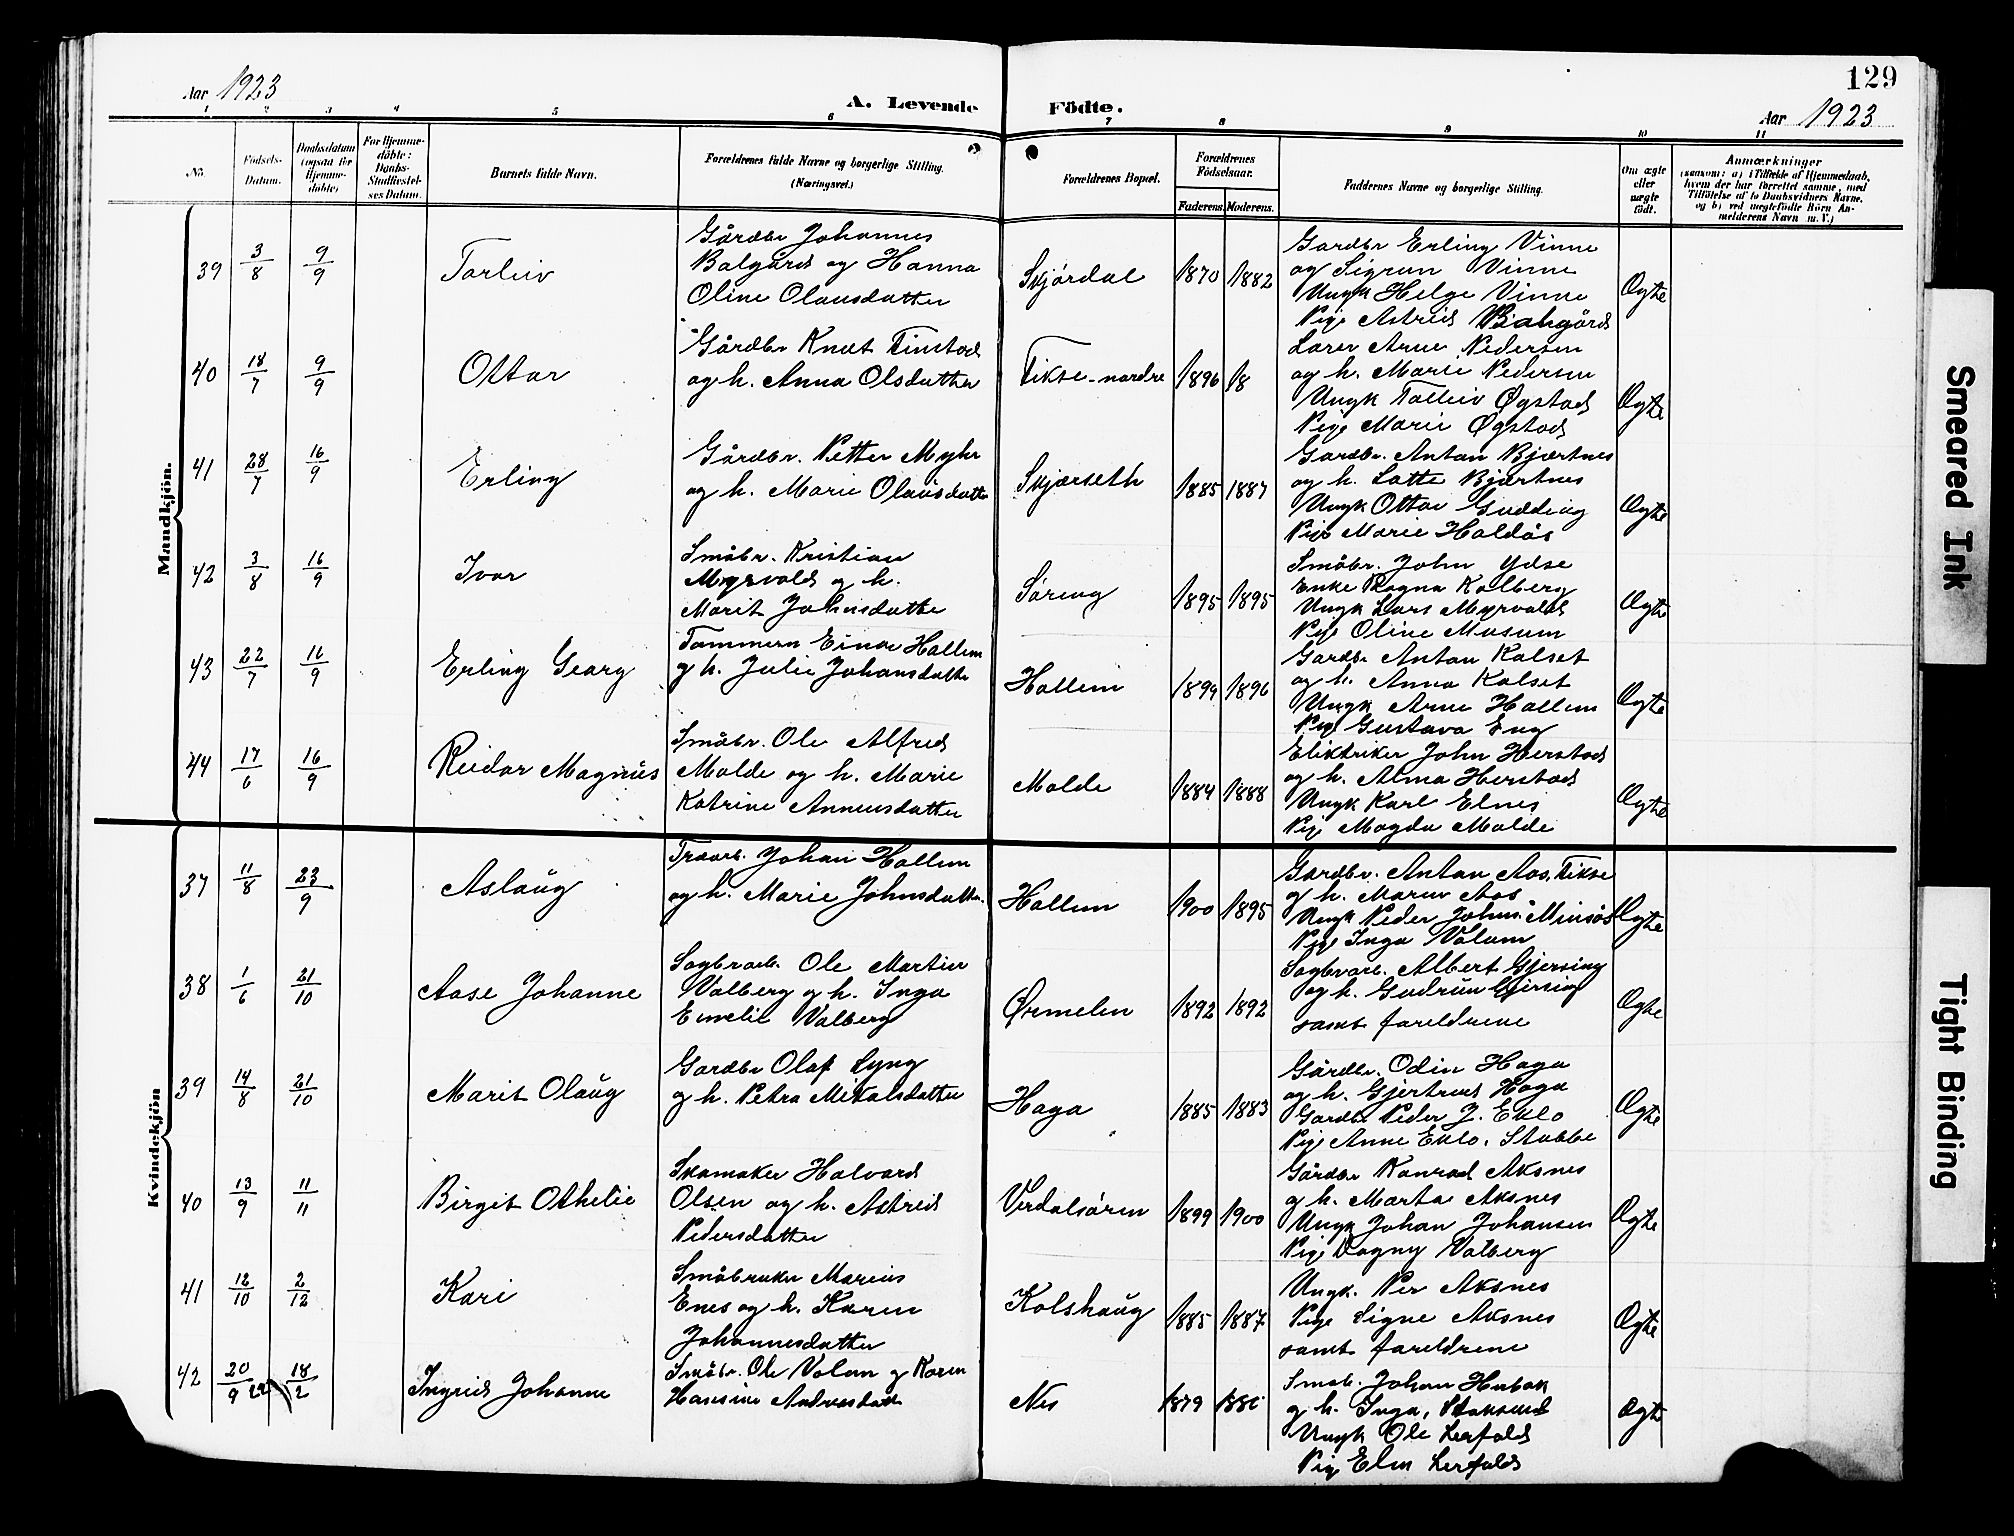 Aar 1923
A. Levende Födte.
129
Aar 1923
1 2 3 4 5 6 7 8 9 10 11
No.
Födsels-
Datum.
Daabsdatum
(ogsaa for
Hjemme-
döbte)
For Hjemme-
döbte:
Daabs-
Stadfæstel-
ses Datum.
Barnets fulde Navn.
Forældrenes fulde Navne og borgerlige Stilling.
(Næringsvei.)
Forældrenes Bopæl.
Forældrenes
Födselsaar.
Faderens. Moderens.
Faddernes Navne og borgerlige Stilling.
Om ægte
eller
uægte
födt.
Anmærkninger
(saasom: a) i Tilfælde af Hjemmedaab,
hvem der har forrettet samme, med
Tilföielse af to Daabsvidners Navne,
og b) ved uægtefödte Börn An-
melderens Navn m. V.)
Mandkjön.
39 3/8 9/9 Torleiv
Gårdbr Johannes
Balgård og Hanna
Oline Olausdatter
Skjördal 1870 1882
Gardbr Erling Vinne
og Sigrun Vinne
Ungk Helge Vinne
Pige Astrid Balgård
Ægte
40 18/7 9/9 Ottar
Gårdbr Knut Tinstad
og h. Anna Olsdatter
Fikse-nordre 1896 18
Lærer Arne Pedersen
og h. Marie Pedersen
Ungk Tolleiv Øgstad
Pige Marie Øgstad
Ægte
41 28/7 16/9 Erling
Gårdbr. Petter Myhr
og h. Marie Olausdatter
Skjærseth 1885 1887
Gardbr. Anton Bjærtnes
og h. Lotte Bjærtnes
Ungk Ottar Gudding
Pige Marie Haldås
Ægte
42 3/8 16/9 Ivar
Småbr. Kristian
Myrvold og h.
Marit Johnsdatter
Søring 1895 1895
Småbr. John Ydse
Enke Ragna Kolberg
Ungk Lars Myrvold
Pige Oline Musum
Ægte
43 22/7 16/9 Erling Georg
Tømmerm Einar Hallem
og h. Julie Johansdatter
Hallem 1899 1896
Gardbr Anton Kalset
og h. Anna Kalset
Ungk Arne Hallem
Pige Gustava Eng
Ægte
44 17/6 16/9 Reidar Magnus
Småbr. Ole Alfred
Molde og h. Marie
Katrine Anneusdatter
Molde 1884 1888
Eliktriker John Herstad
og h. Alma Herstad
Ungk Karl Elnes
Pige Magda Molde
Ægte
Kvindekjön
37 11/8 23/9 Aslaug
Træarb. Johan Hallem
og h. Marie Johnsdatter
Hallem 1900 1895
Gardbr. Anton Aas, Fikse
og h. Maren Aas
Ungk Peder Johns. Minsås
Pige Inga Volum
Ægte
38 1/6 21/10 Aase Johanne
Sagbrarb. Ole Martin
Valberg og h. Inga
Emelie Valberg
Ørmelen 1892 1892
Sagbrarb. Albert Gjersing
og h. Gudrun Gjersing
samt foreldrene
Ægte
39 14/8 21/10 Marit Olaug
Gardbr Olaf Lyng
og h. Petra Mikalsdatter
Haga 1885 1883
Gårdbr. Odin Haga
og h. Gjertrud Haga
Gardbr Peder J. Eklo
Pige Anne Eklo, Stubbe
Ægte
40 13/9 11/11 Birgit Othelie
Skomaker Halvard
Olsen og h. Astrid
Pedersdatter
Verdalsøren 1899 1900
Gårdbr Konrad Aksnes
og h. Marta Aksnes
Ungk Johan Johansen
Pige Dagny Valberg
Ægte
41 12/10 2/12 Kari
Småbruker Marius
Enes og h. Karen
Johannesdatter
Kolshaug 1885 1887
Ungk. Per Aksnes
Pige Signe Aksnes
samt foreldrene
Ægte
42 20/9 22 18/2 Ingrid Johanne
Småbr. Ole Volen og Karen
Hansine Andreasdatter
Nes 1879
Småb. Johan
og h. Inga,
Ungk Ole Lerfald
Pige Elen Lerfald
Ægte
Smeared Ink
Tight Binding